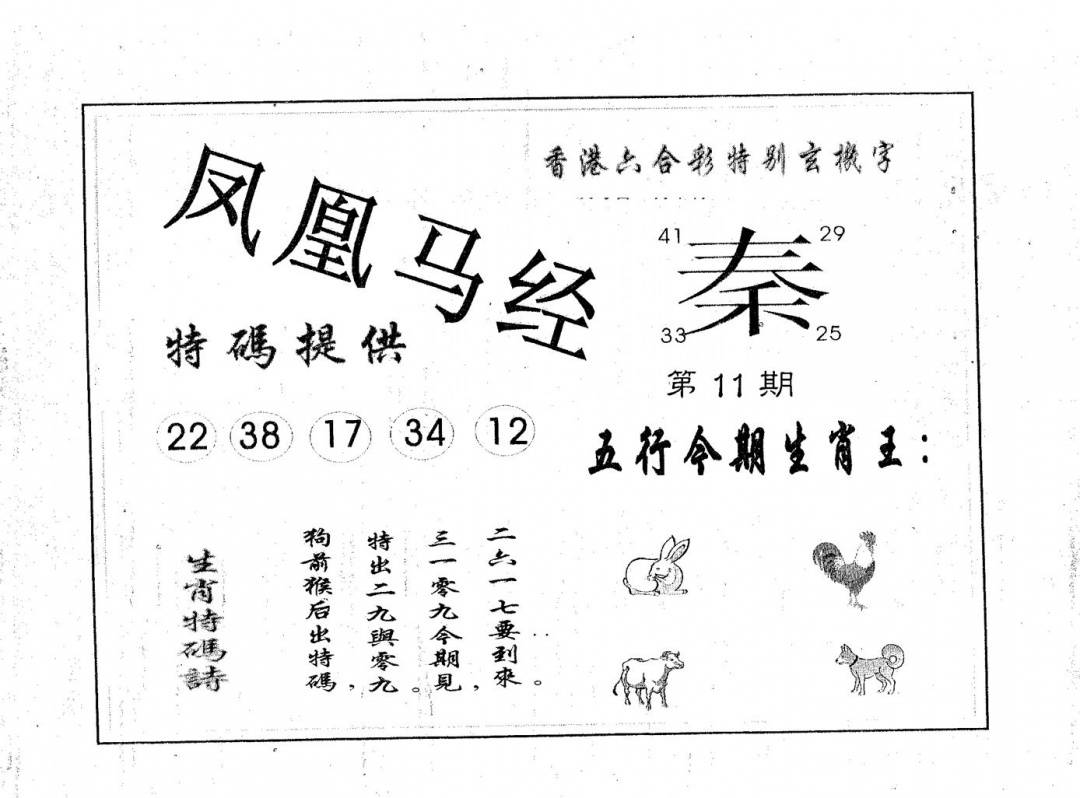 凤凰马经
香港六合彩特别玄機字
41 秦 29
33 25
第 11 期
特碼提供
22 38 17 34 12
五行今期生肖王：
生肖特碼詩
狗前猴后出特碼，
特出二九與零九。
三一零九今期見，
二六一七要到來。